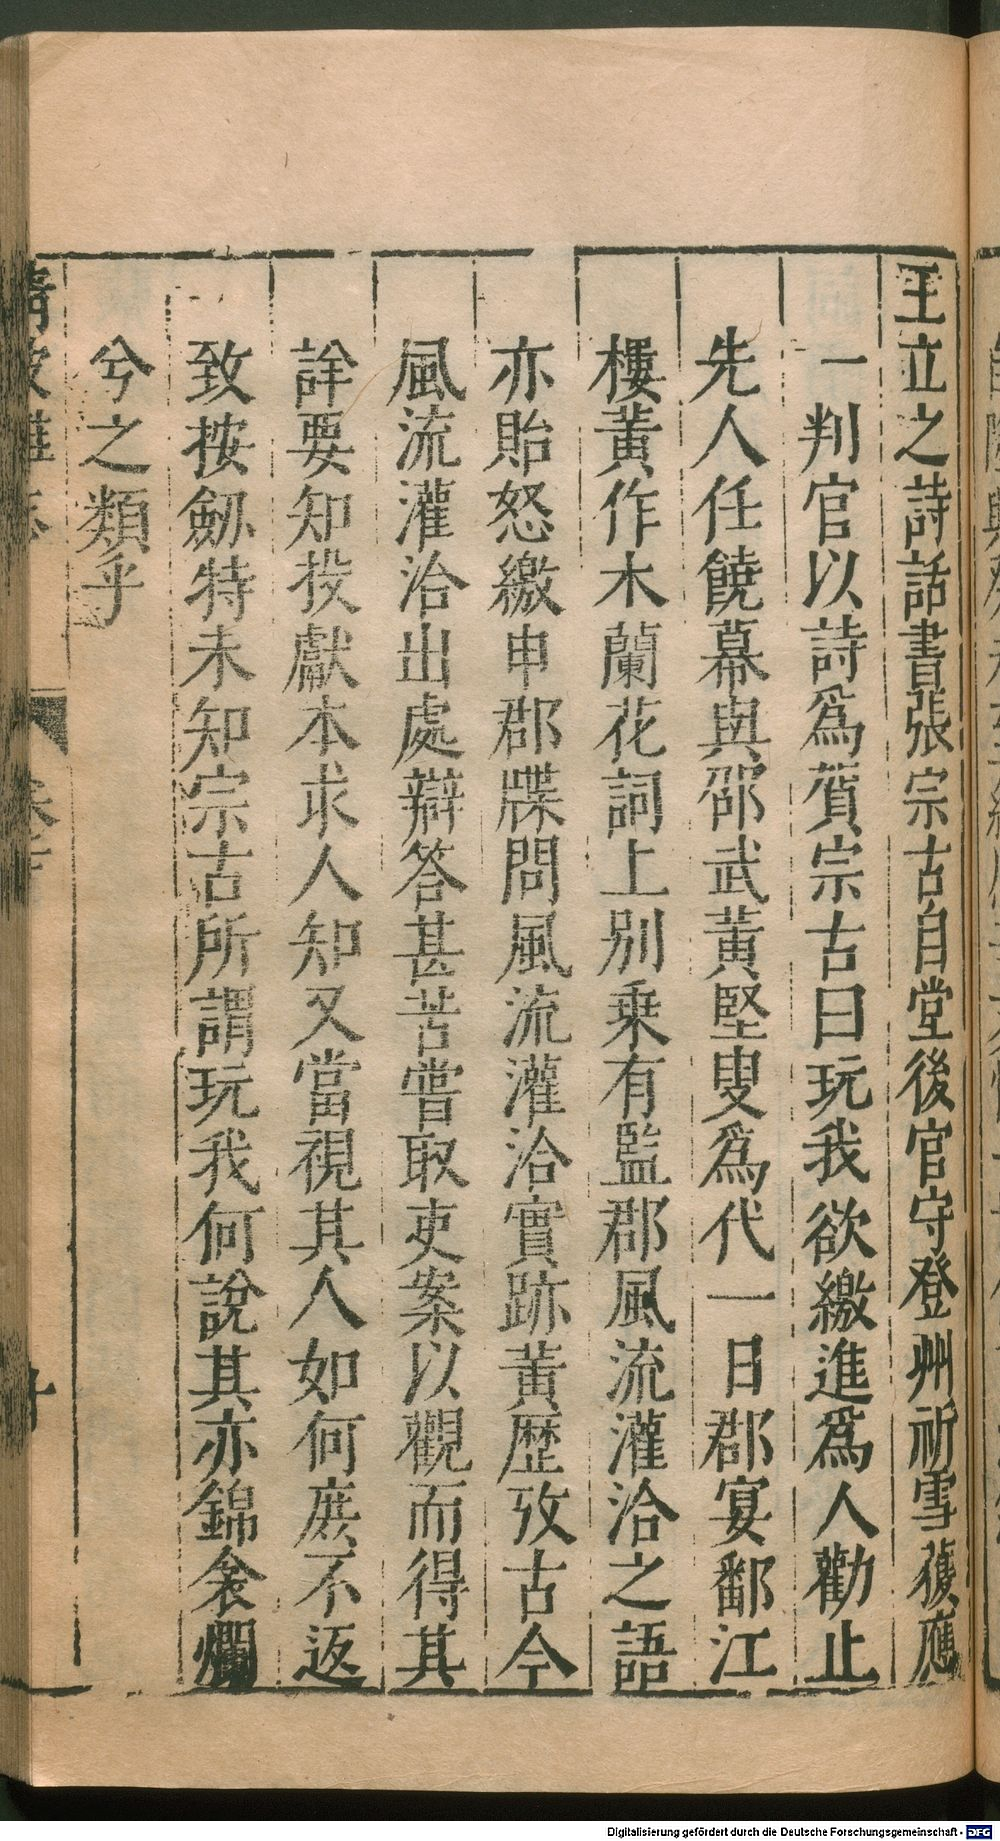 王立之詩話書張宗古自堂後官守登州祈雪獲應
一判官以詩爲賀宗古曰玩我欲繳進爲人勸止
先人任饒幕與邵武黃堅叟爲代一日郡宴鄱江
樓黃作木蘭花詞上別乗有監郡風流灌洽之語
亦貽怒繳申郡牒問風流灌洽實跡黃歷攷古今
風流灌洽出處辯答甚苦嘗取吏案以觀而得其
詳要知投獻本求人知又當視其人如何庶不返
致按劒特未知宗古所謂玩我何說其亦錦衾爛
兮之類乎
Digitalisierung gefördert durch die Deutsche Forschungsgemeinschaft - DFG